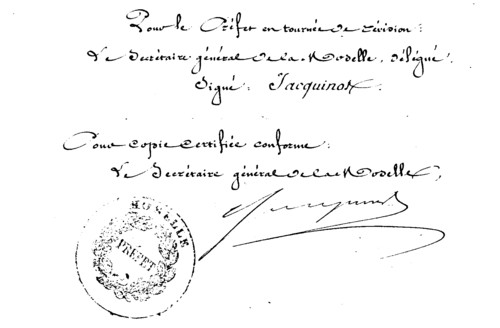 Pour le Préfet en tournée de révision :
Le Secrétaire général de la Moselle, délégué,
Signé : Jacquinot
Pour copie certifiée conforme :
Le Secrétaire général de la Moselle,
MOSELLE
PREFET